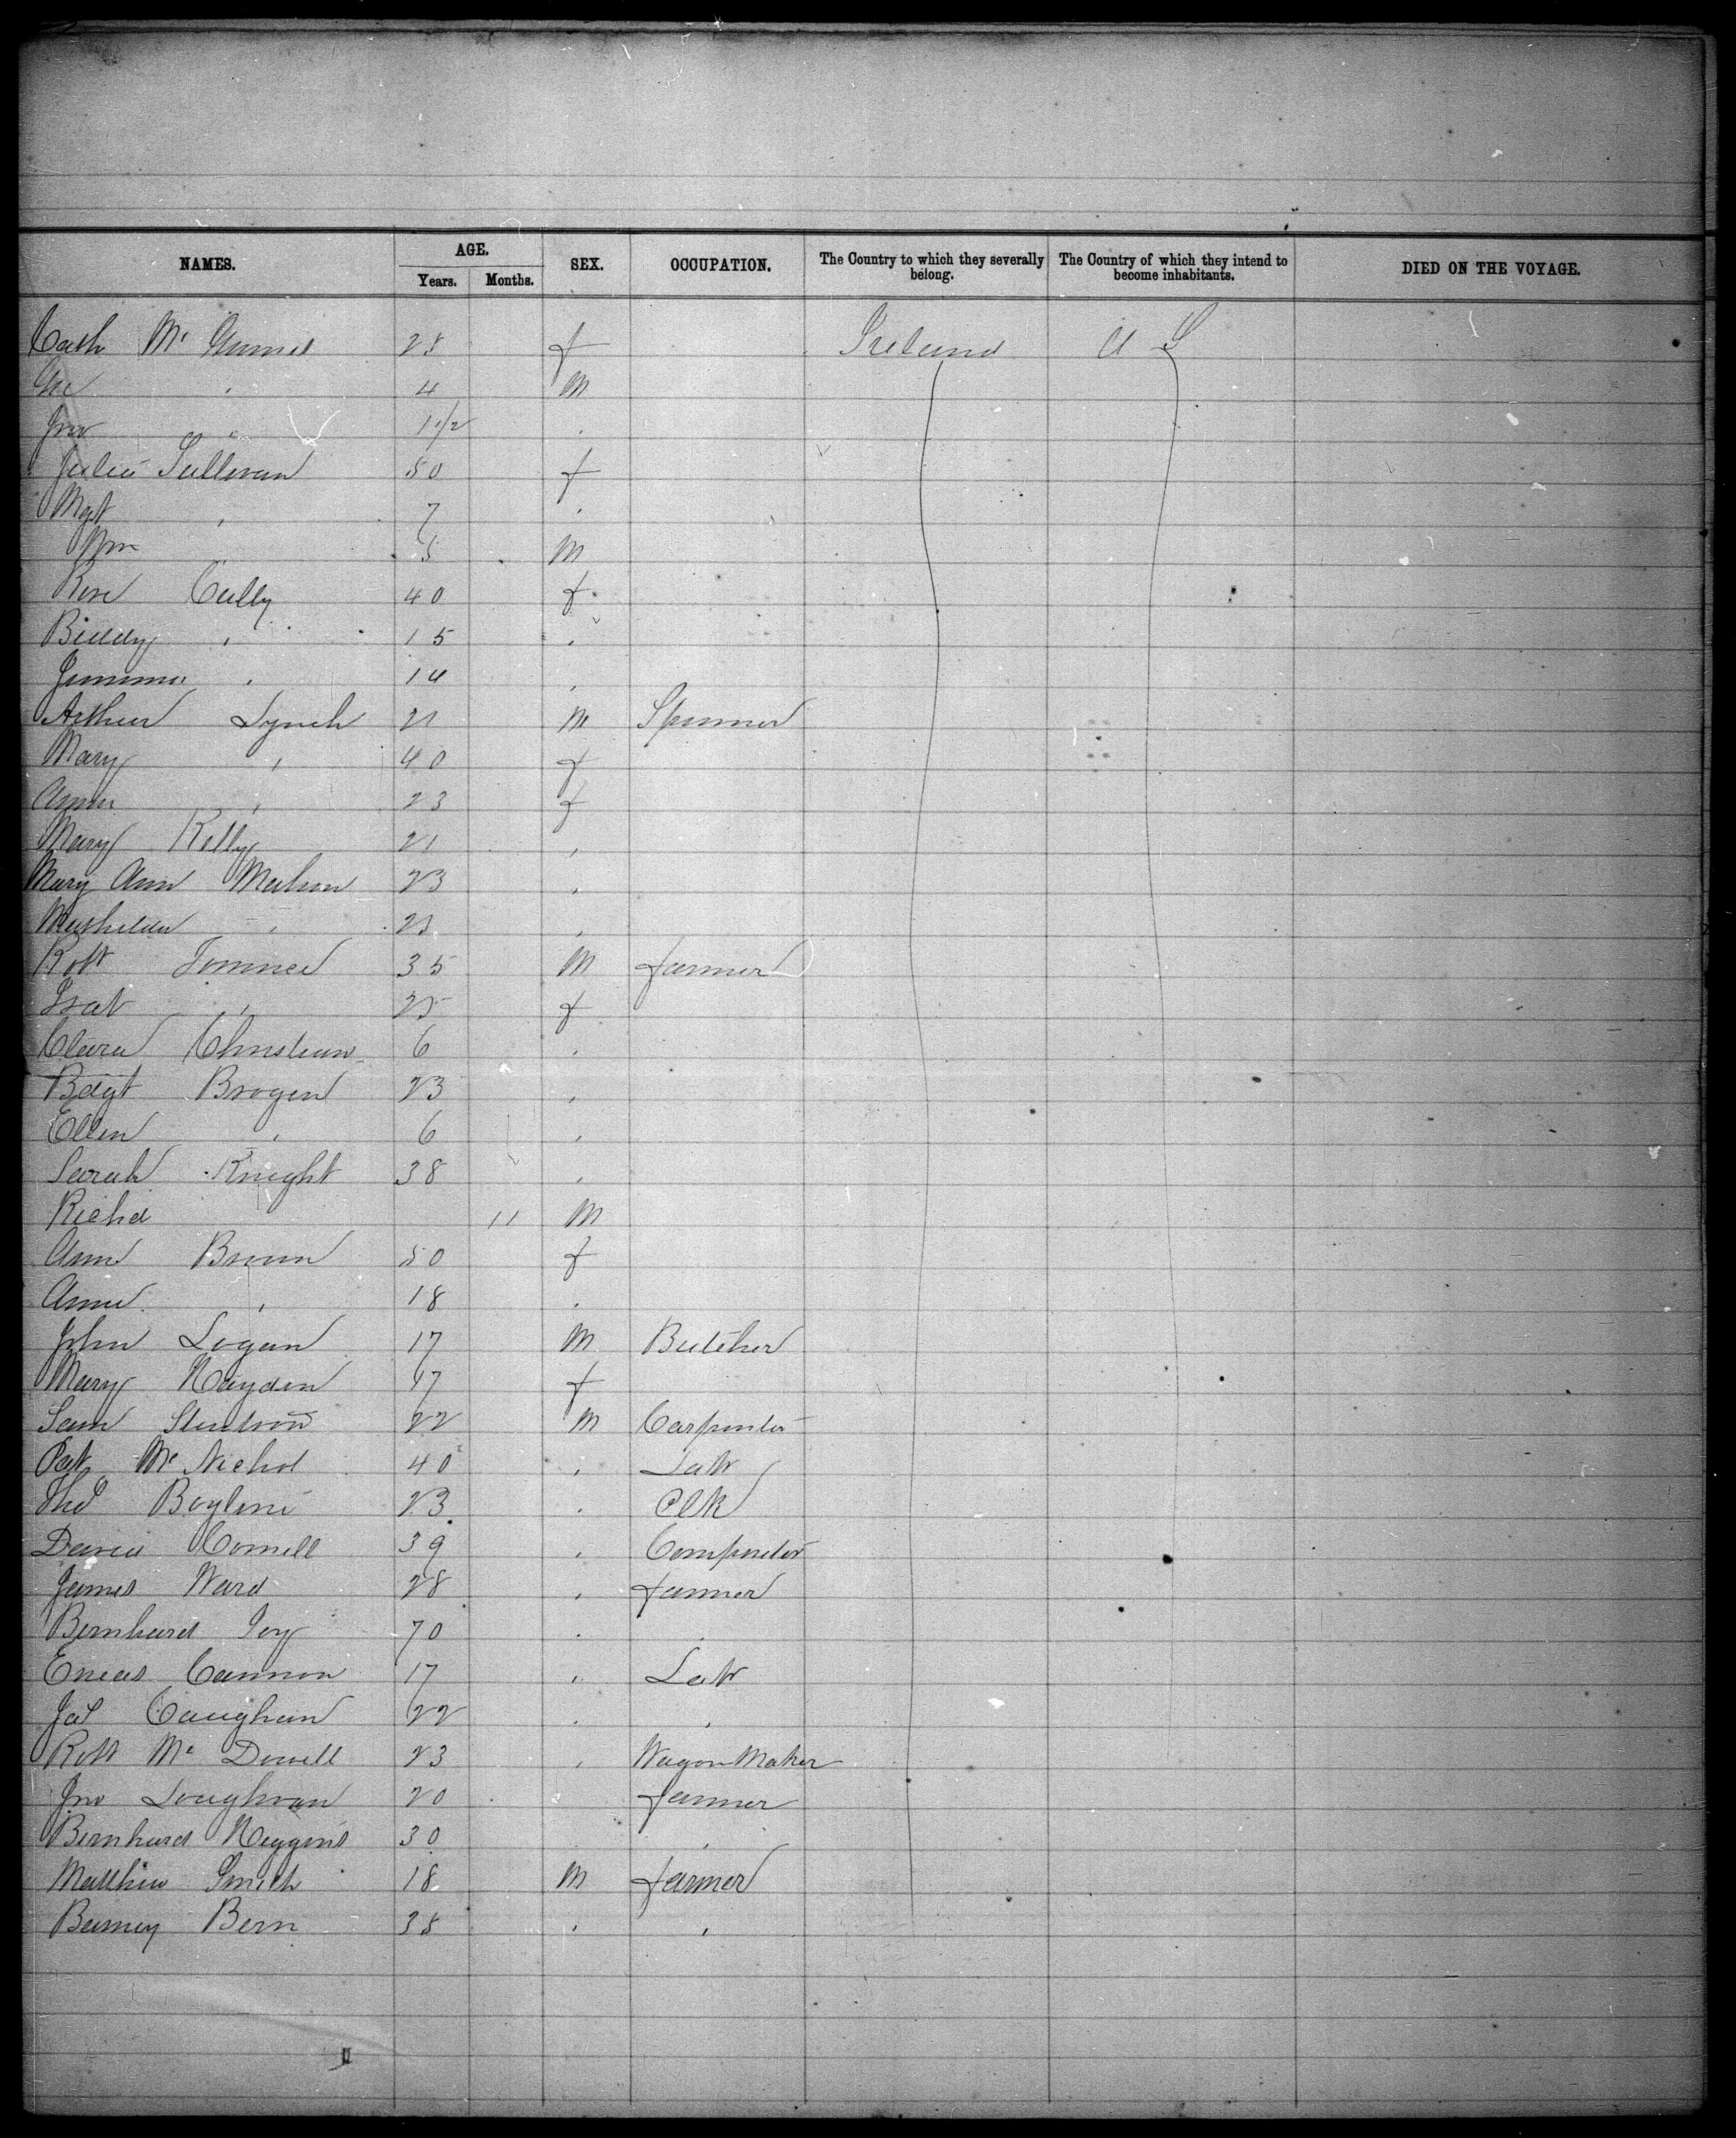 NAMES. AGE. SEX. OCCUPATION. The Country to which they severally belong. The Country of which they intend to become inhabitants. DIED ON THE VOYAGE.
Years. Months.
Cath Mc 28 f Ireland U S
" 4 M
Jno " 1 1/2 "
Julia Sullivan 50 f
Mgt " 7 "
Wm 5 M
Rose Cully 40 f
Biddy " 15 "
Jemima " 14 "
Arthur Lynch 21 M Spinner
Mary " 40 f
Annie " 23 f
Mary Kelly 21 "
Mary Ann Mahon 23 "
Mathilda " 21 "
Robt 35 M farmer
Isab " 25 f
Clara Christian 6 "
Bdgt Brogen 23 "
Ellen " 6 "
Sarah Knight 38 "
Richd 11 M
Ann Brown 50 f
Annie " 18 "
John Logan 17 M Butcher
Mary Hayden 17 f
Sam 22 M Carpenter
Pat Mc Nichol 40 " Labr
Thos Boylan 23 " Clk
David Connell 39 " Compositor
James Ward 28 " farmer
Bernhard 70 " "
Eneas Cannon 17 " Labr
Jas Caughan 22 " "
Robt Mc Dowell 23 " Wagon Maker
Jno Loughran 20 farmer
Bernhard Higgins 30 "
Matthew Smith 18 M farmer
Barney Bern 38 " "